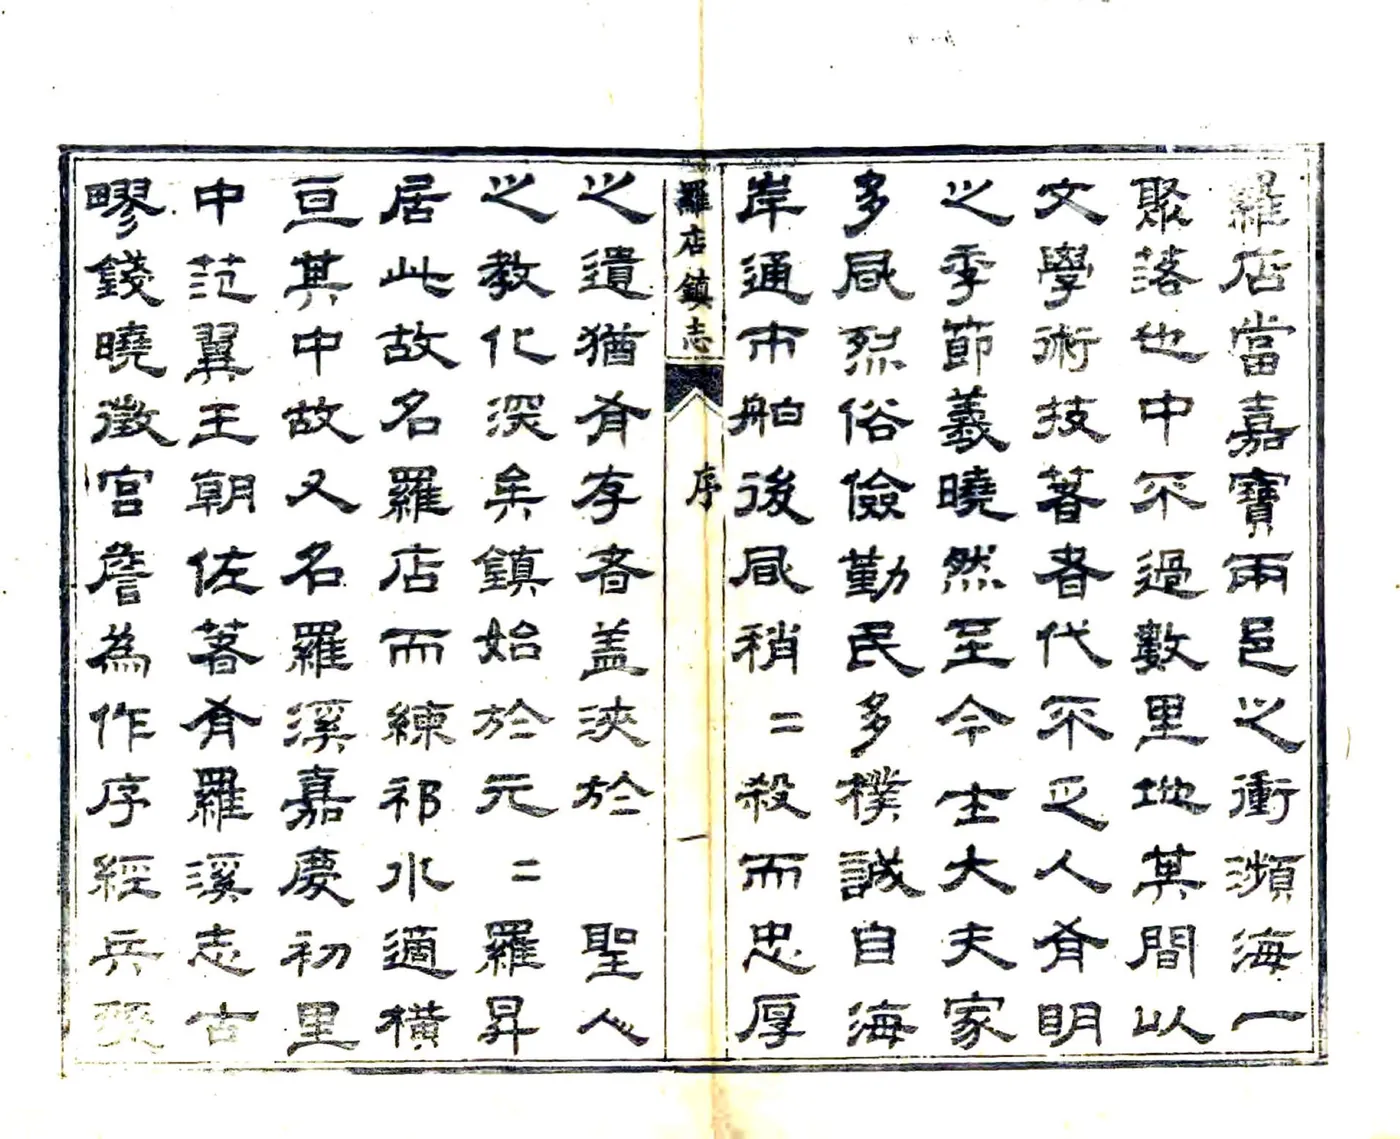 羅店當嘉寶兩邑之衝瀕海一
聚落也中不過數里地其間以
文學術技著者代不乏人有明
之季節義曉然至今士大夫家
多風烈俗儉勤民多樸誠自海
岸通市舶後風稍二殺而忠厚
羅店鎮志 序 一
之遺猶有存者盖浹於 聖人
之教化深矣鎮始於元二羅昇
居此故名羅店而練祁水適橫
亘其中故又名羅溪嘉慶初里
中范翼王朝佐著有羅溪志古
疁錢曉徵宮詹為作序經兵燹